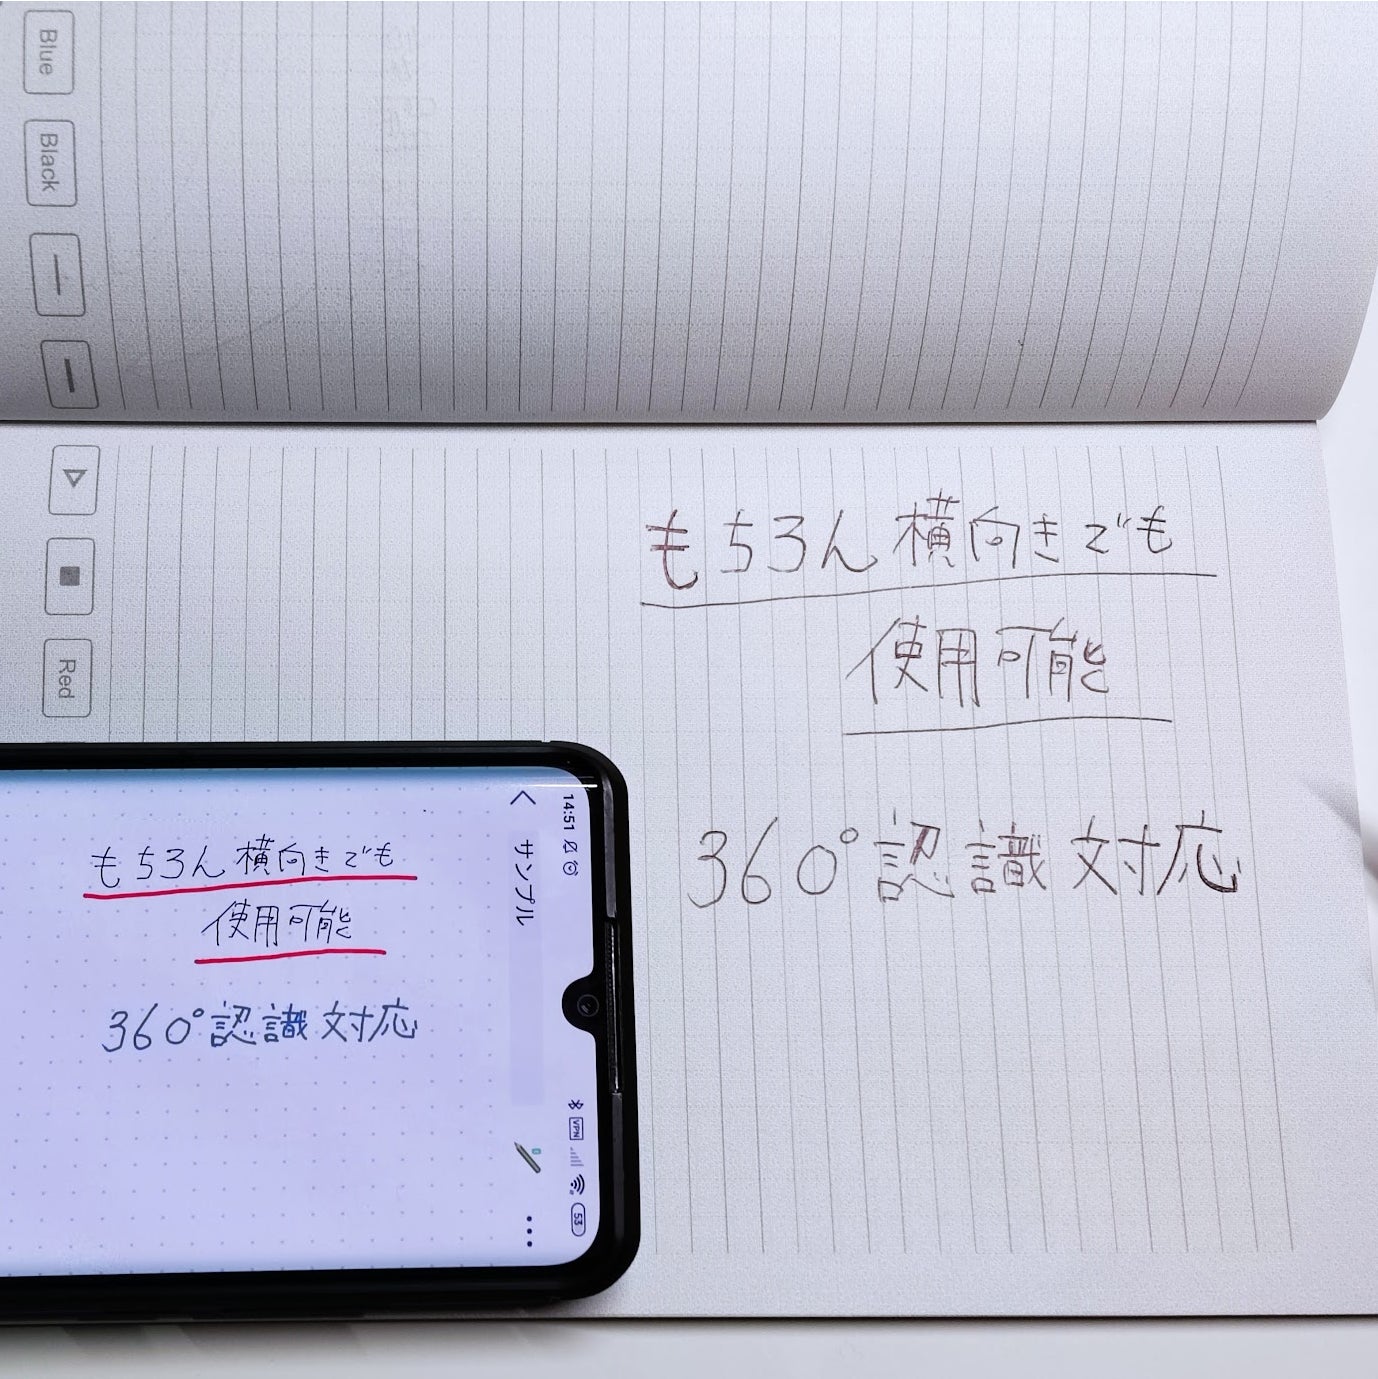 Blue
Black
Red
もちろん横向きでも
使用可能
360°認識対応
14:51
サンプル
VPN
53
もちろん横向きでも
使用可能
360°認識対応